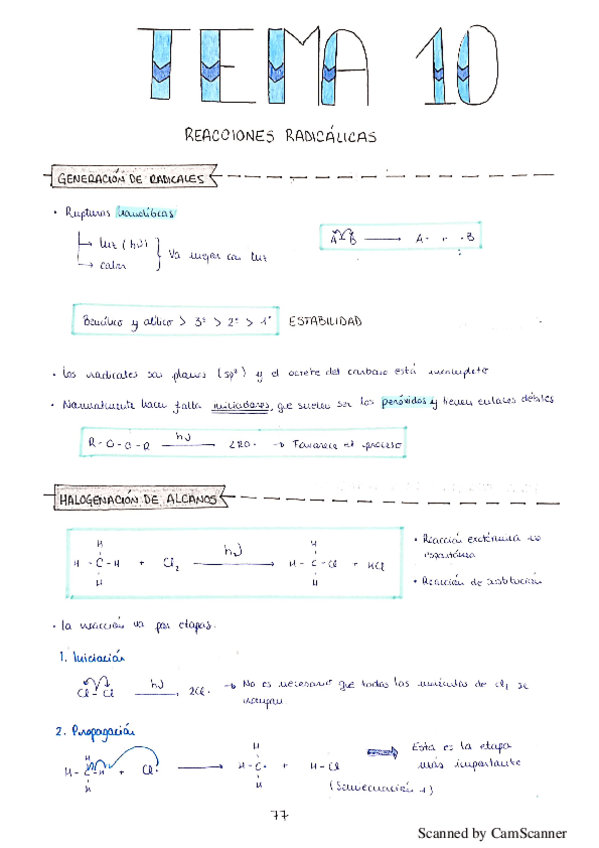 TEMA 10
REACCIONES RADICÁLICAS
GENERACIÓN DE RADICALES
• Rupturas homolíticas
luz (hν)
calor
Va mejor con luz
A-B → A· + ·B
Bencílico y alílico > 3º > 2º > 1º ESTABILIDAD
• Los radicales son planos (sp²) y el octete del carbono está incompleto
• Normalmente hacen falta iniciadores, que suelen ser los peróxidos y tienen enlaces débiles
R-O-O-R hν → 2RO· → Favorece el proceso
HALOGENACIÓN DE ALCANOS
H H
H - C - H + Cl₂ hν → H - C - Cl + HCl
H H
• Reacción exotérmica no
espontánea
• Reacción de sustitución
• La reacción va por etapas.
1. Iniciación
Cl - Cl hν → 2Cl· → No es necesario que todas las moléculas de Cl₂ se
rompan
2. Propagación
H H
H - C - H + Cl· → H - C· + H - Cl
H H
Esta es la etapa
más importante
(Semiecuación 1)
77
Scanned by CamScanner